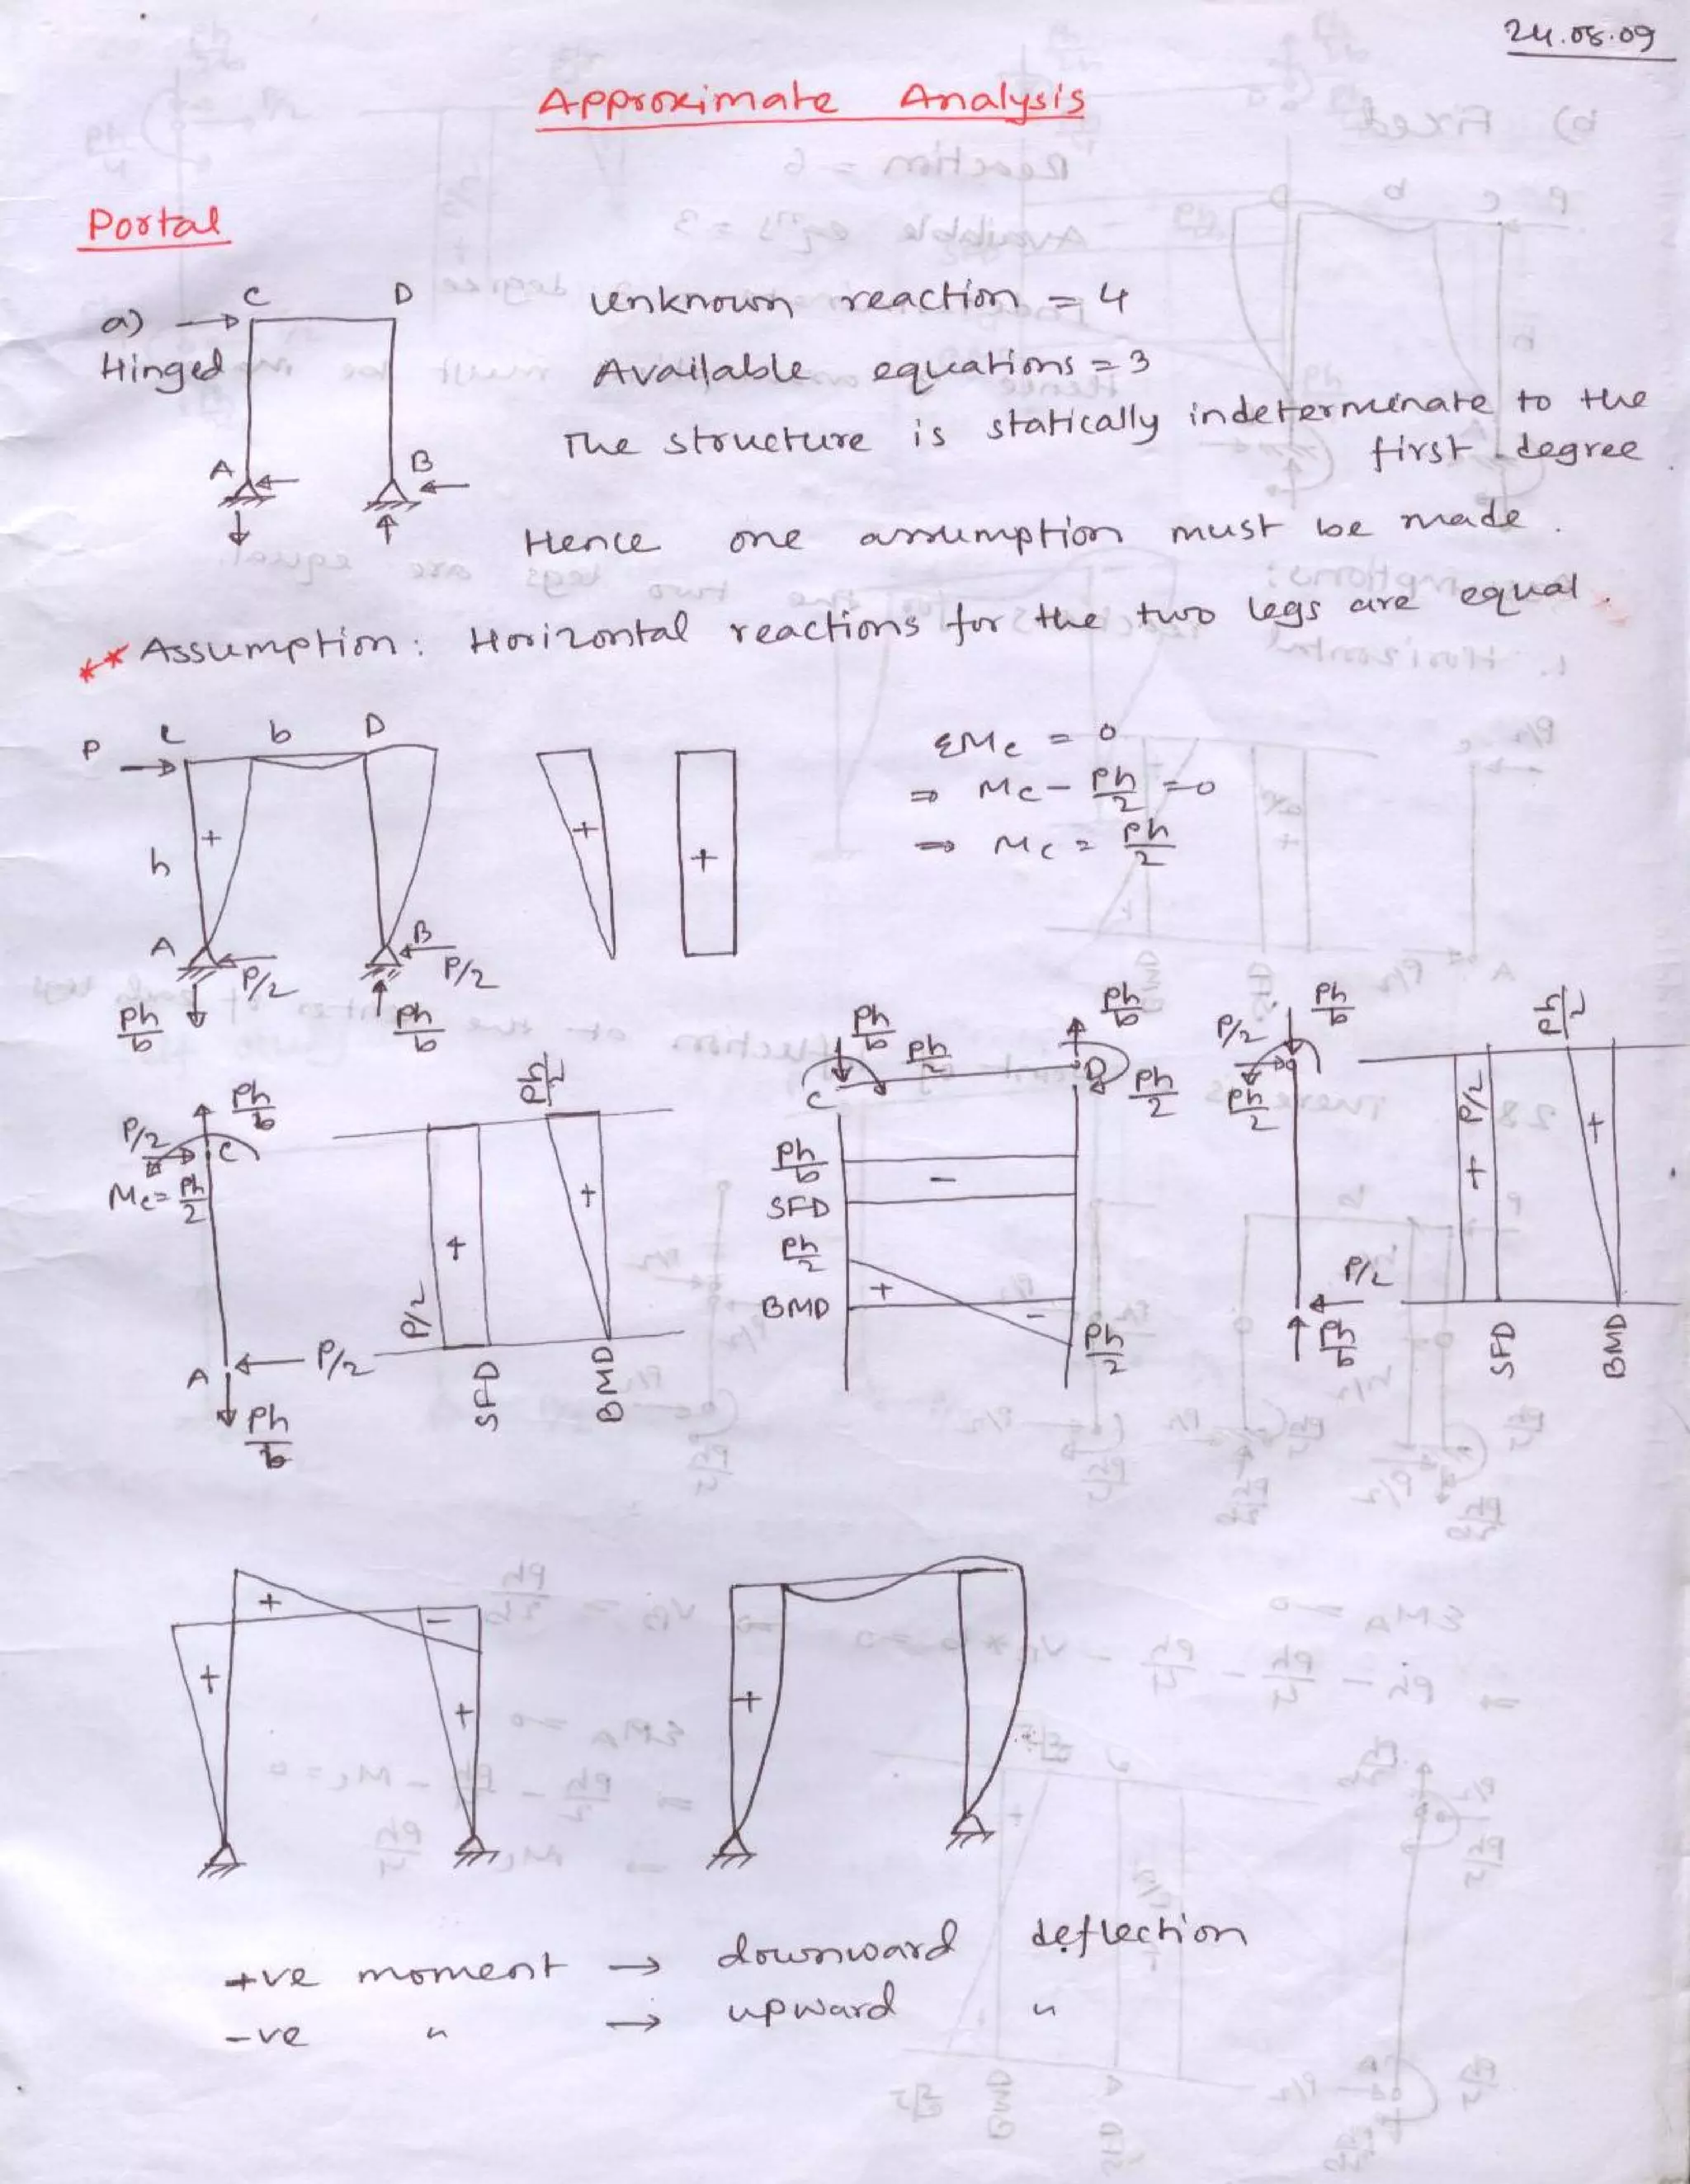 24.08.09
Approximate Analysis
Portal
a) Hinged
C D
A B
Unknown reaction = 4
Available equations = 3
The structure is statically indeterminate to the first degree.
Hence one assumption must be made.
** Assumption: Horizontal reactions for the two legs are equal.
P C b D
h +
A B
P/2 P/2
Ph/b Ph/b
+ +
ΣMc = 0
⇒ Mc - Ph/2 = 0
⇒ Mc = Ph/2
Ph/b
P/2 C
Mc = Ph/2
A P/2
Ph/b
P/2 + SFD
Ph/2 + BMD
Ph/b Ph/2 Ph/b
C D Ph/2
Ph/b -
SFD
Ph/2 +
BMD - Ph/2
P/2 Ph/b
Ph/2
P/2
Ph/b
P/2 + SFD
Ph/2 + BMD
+ -
+ +
+
+ve moment → downward deflection
-ve " → upward "